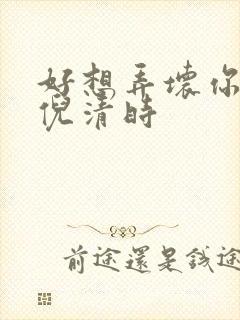 好想弄壞你
倪清時
前途還是錢途